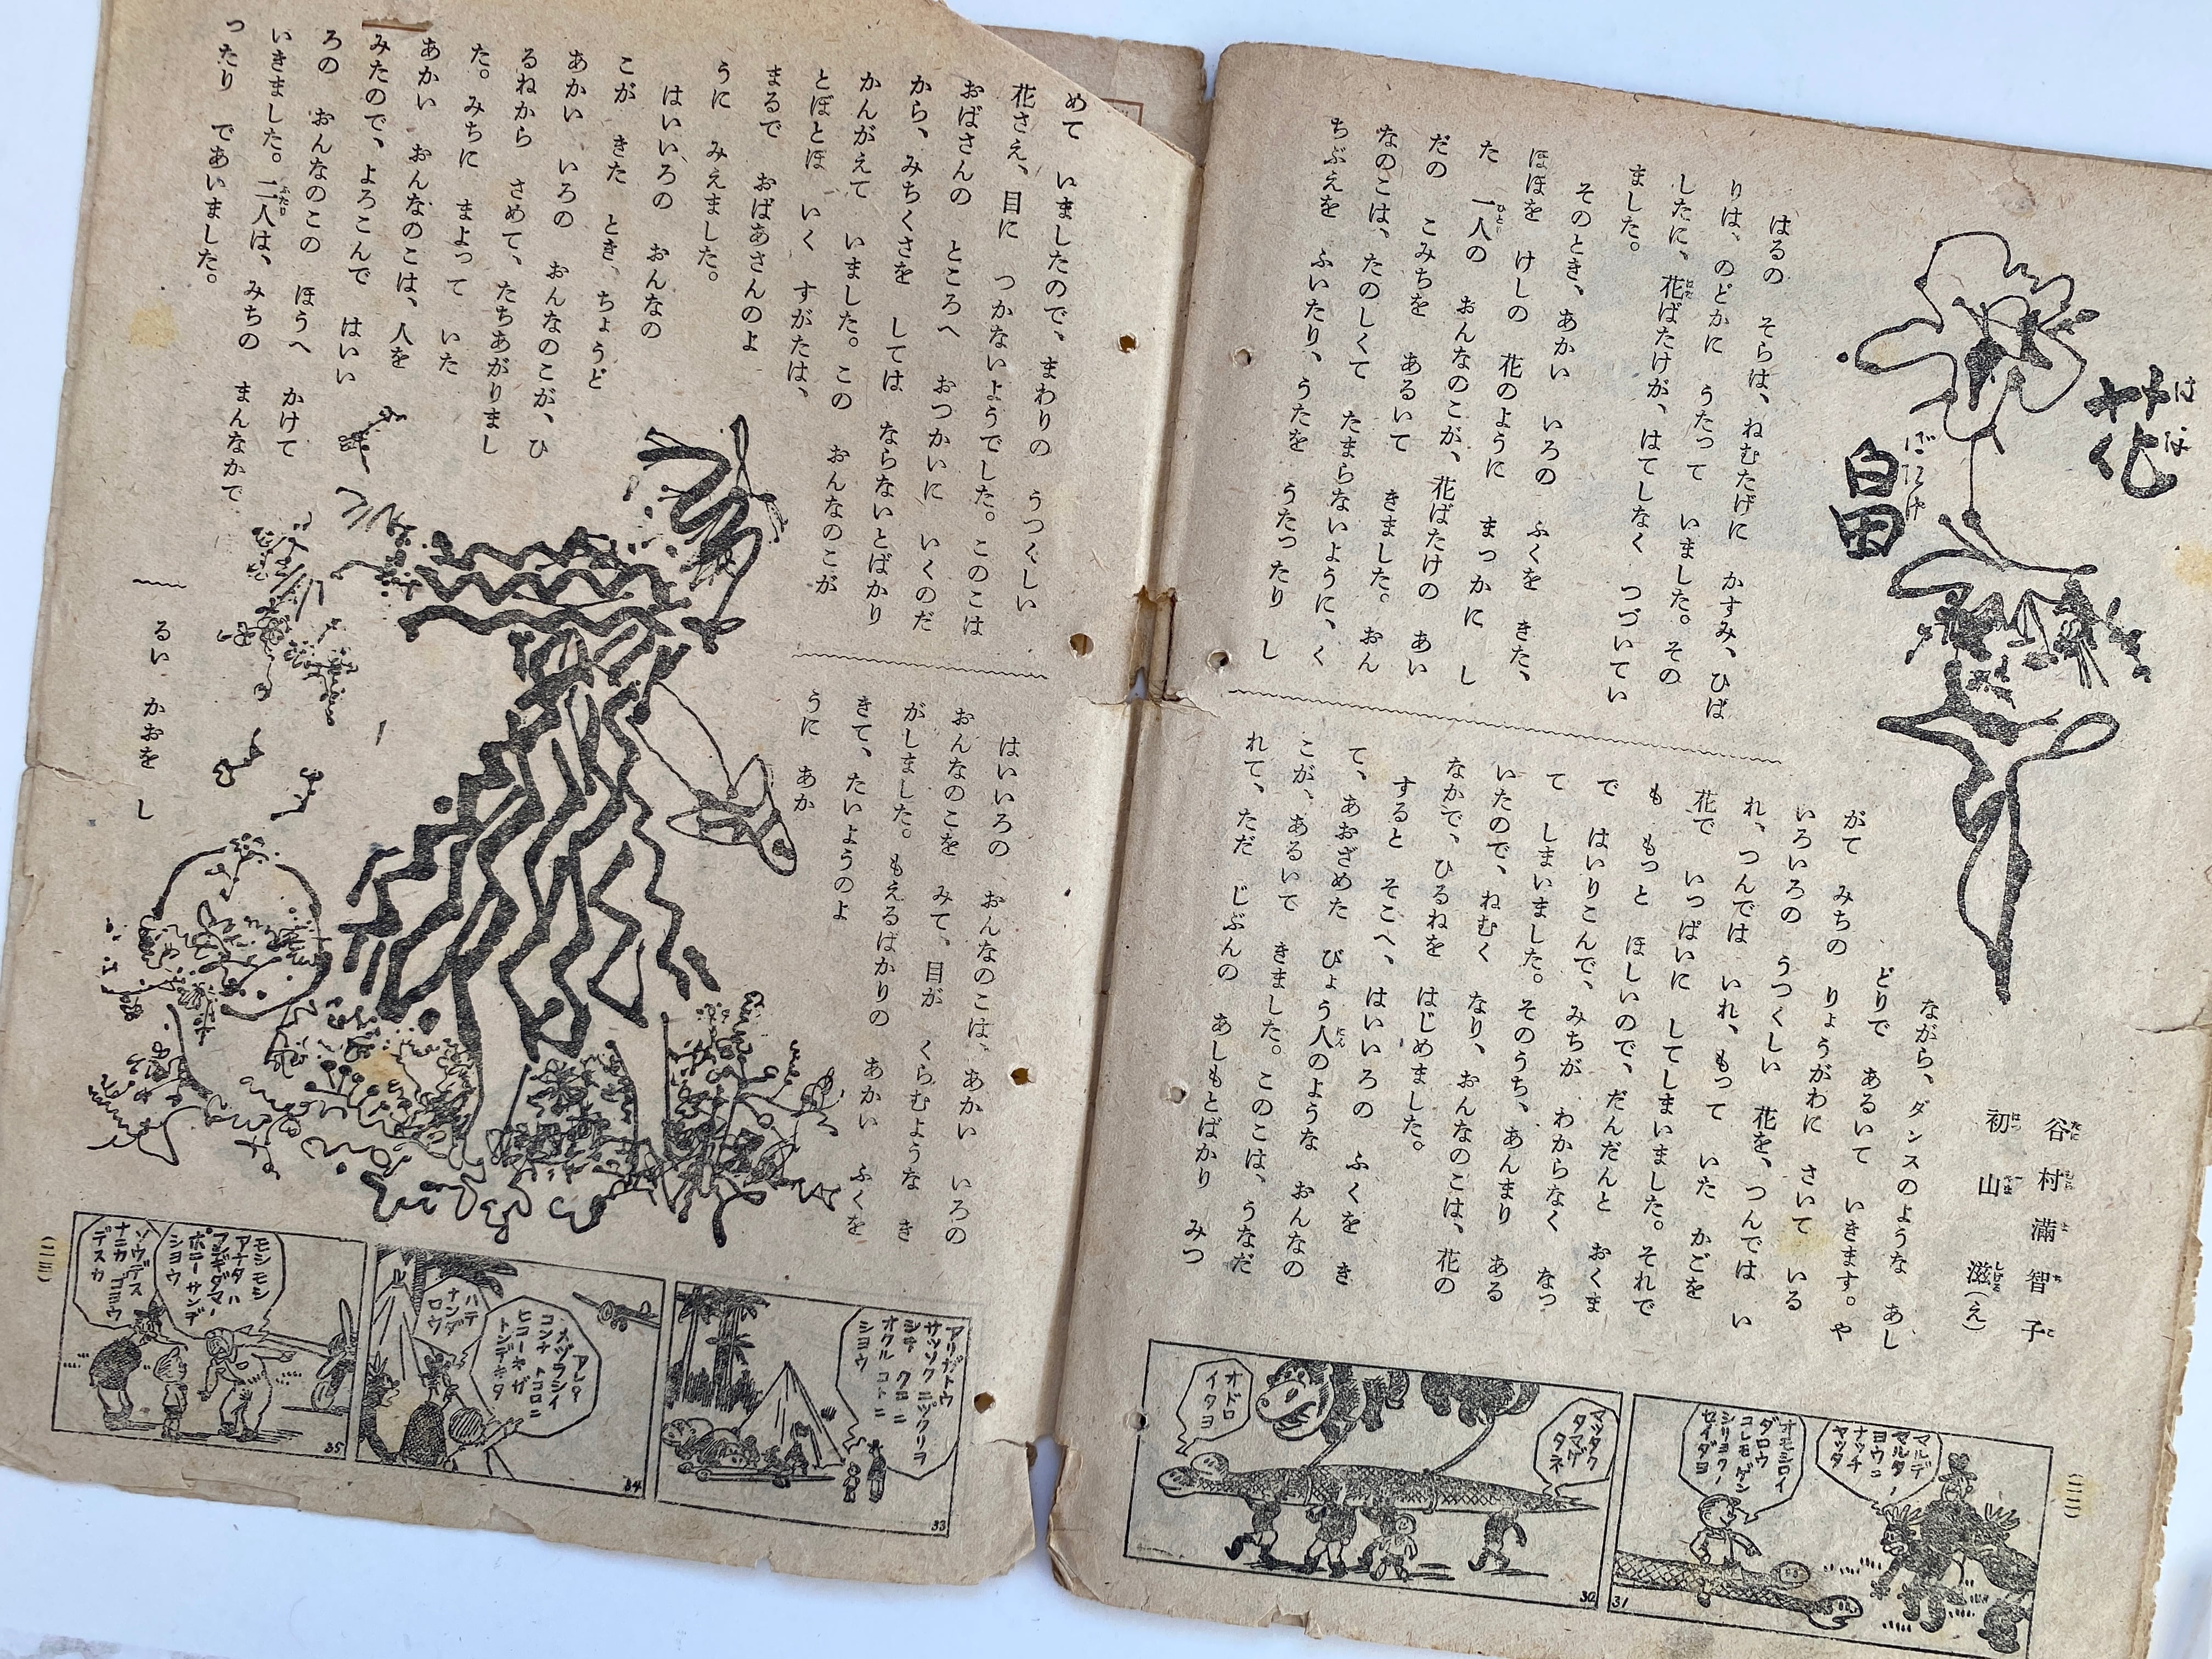 花畠
はなばたけ
谷村滿智子
たにむらまちこ
初山 滋(え)
はつやま しげる
はるの そらは、ねむたげに かすみ、ひば
りは、のどかに うたって いました。その
したに、花ばたけが、はてしなく つづいてい
ました。
そのとき、あかい いろの ふくを きた、
ほほを けしの 花のように まっかに し
た 一人の おんなのこが、花ばたけの あい
だの こみちを あるいて きました。おん
なのこは、たのしくて たまらないように、く
ちぶえを ふいたり、うたを うたったり し
ながら、ダンスのような あし
どりで あるいて いきます。や
がて みちの りょうがわに さいて いる
いろいろの うつくしい 花を、つんでは い
れ、つんでは いれ、もって いた かごを
花で いっぱいに してしまいました。それで
も もっと ほしいので、だんだんと おくま
で はいりこんで、みちが わからなく なっ
て しまいました。そのうち、あんまり ある
いたので、ねむく なり、おんなのこは、花の
なかで、ひるねを はじめました。
すると そこへ、はいいろの ふくを き
て、あおざめた びょう人のような おんなの
こが、あるいて きました。このこは、うなだ
れて、ただ じぶんの あしもとばかり みつ
めて いましたので、まわりの うつくしい
花さえ、目に つかないようでした。このこは
おばさんの ところへ おつかいに いくのだ
から、みちくさを しては ならないとばかり
かんがえて いました。この おんなのこが
とぼとぼ いく すがたは、
まるで おばあさんのよ
うに みえました。
はいいろの おんなの
こが きた とき、ちょうど
あかい いろの おんなのこが、ひ
るねから さめて、たちあがりまし
た。みちに まよって いた
あかい おんなのこは、人を
みたので、よろこんで はいい
ろの おんなのこの ほうへ かけて
いきました。二人は、みちの まんなかで
ったり であいました。
はいいろの おんなのこは、あかい いろの
おんなのこを みて、目が くらむような き
がしました。もえるばかりの あかい ふくを
きて、たいようのよ
うに あか
るい かおを し
(二二)
マルデ
マルタノ
ヨウニ
ナッチ
ヤッタ
オモシロイ
ダロウ
コレモゲン
シリヨクノ
セイダヨ
31
マッタク
タマゲ
タネ
オドロ
イタヨ
32
アリガトウ
サッソク ニックリヲ
シテ クニニ
オクル コトニ
シヨウ
33
アレ
メヅラシイ
コンナ トコロニ
ヒコーキガ
トンデキタ
ハテ
ナンダ
ロウ
34
モシモシ
アナタハ
フシギダマノ
ポニーサンデ
シヨウ
ソウデス
ナニカ ゴヨウ
デスカ
35
(二三)